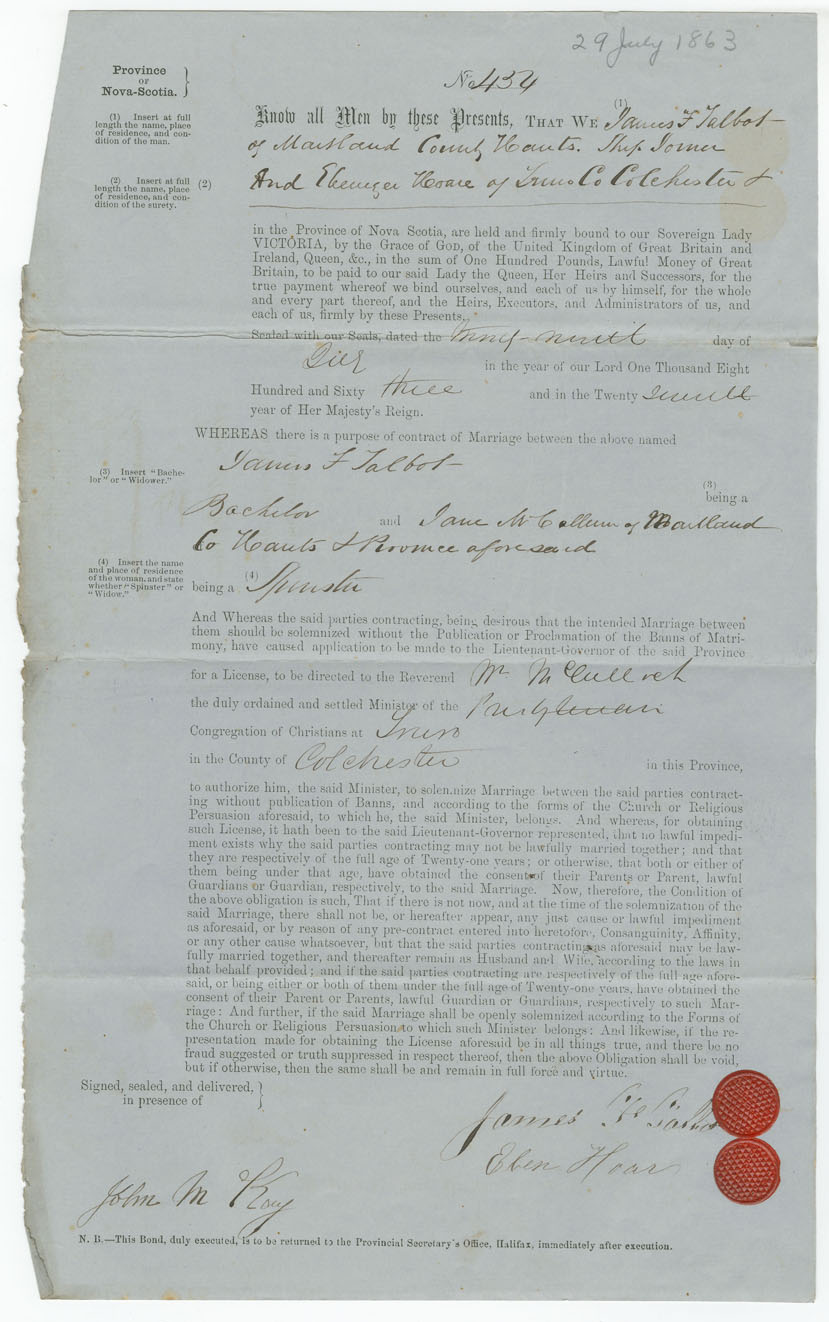 29 July 1863
Province
OF
Nova-Scotia.
No 434
(1) Insert at full
length the name, place
of residence, and con-
dition of the man.
Know all Men by these Presents, THAT WE (1) James F Talbot
of Maitland County Hants. Ship Joiner
(2) Insert at full
length the name, place
of residence, and con-
dition of the surety.
(2) And Ebenezer Hoare of Truro Co Colchester &
in the Province of Nova Scotia, are held and firmly bound to our Sovereign Lady
VICTORIA, by the Grace of GOD, of the United Kingdom of Great Britain and
Ireland, Queen, &c., in the sum of One Hundred Pounds, Lawful Money of Great
Britain, to be paid to our said Lady the Queen, Her Heirs and Successors, for the
true payment whereof we bind ourselves, and each of us by himself, for the whole
and every part thereof, and the Heirs, Executors, and Administrators of us, and
each of us, firmly by these Presents.
Sealed with our Seals, dated the day of
in the year of our Lord One Thousand Eight
Hundred and Sixty three and in the Twenty
year of Her Majesty's Reign.
WHEREAS there is a purpose of contract of Marriage between the above named
James F Talbot
(3) Insert "Bache-
lor" or "Widower."
(3)
being a
Bachelor and Jane McCallum of Maitland
Co Hants & Province aforesaid
(4) Insert the name
and place of residence
of the woman, and state
whether "Spinster" or
"Widow."
being a (4) Spinster
And Whereas the said parties contracting, being desirous that the intended Marriage between
them should be solemnized without the Publication or Proclamation of the Banns of Matri-
mony, have caused application to be made to the Lieutenant-Governor of the said Province
for a License, to be directed to the Reverend Wm McCulloch
the duly ordained and settled Minister of the Presbyterian
Congregation of Christians at Truro
in the County of Colchester in this Province,
to authorize him, the said Minister, to solemnize Marriage between the said parties contract-
ing without publication of Banns, and according to the forms of the Church or Religious
Persuasion aforesaid, to which he, the said Minister, belongs. And whereas, for obtaining
such License, it hath been to the said Lieutenant-Governor represented, that no lawful impedi-
ment exists why the said parties contracting may not be lawfully married together; and that
they are respectively of the full age of Twenty-one years; or otherwise, that both or either of
them being under that age, have obtained the consent of their Parents or Parent, lawful
Guardians or Guardian, respectively, to the said Marriage. Now, therefore, the Condition of
the above obligation is such, That if there is not now, and at the time of the solemnization of the
said Marriage, there shall not be, or hereafter appear, any just cause or lawful impediment
as aforesaid, or by reason of any pre-contract entered into heretofore, Consanguinity, Affinity,
or any other cause whatsoever, but that the said parties contracting as aforesaid may be law-
fully married together, and thereafter remain as Husband and Wife, according to the laws in
that behalf provided; and if the said parties contracting are respectively of the full age afore-
said, or being either or both of them under the full age of Twenty-one years, have obtained the
consent of their Parent or Parents, lawful Guardian or Guardians, respectively to such Mar-
riage: And further, if the said Marriage shall be openly solemnized according to the Forms of
the Church or Religious Persuasion to which such Minister belongs: And likewise, if the re-
presentation made for obtaining the License aforesaid be in all things true, and there be no
fraud suggested or truth suppressed in respect thereof, then the above Obligation shall be void,
but if otherwise, then the same shall be and remain in full force and virtue.
Signed, sealed, and delivered,
in presence of
James F Talbot
Eben Hoar
John M Kay
N. B.—This Bond, duly executed, is to be returned to the Provincial Secretary's Office, Halifax, immediately after execution.